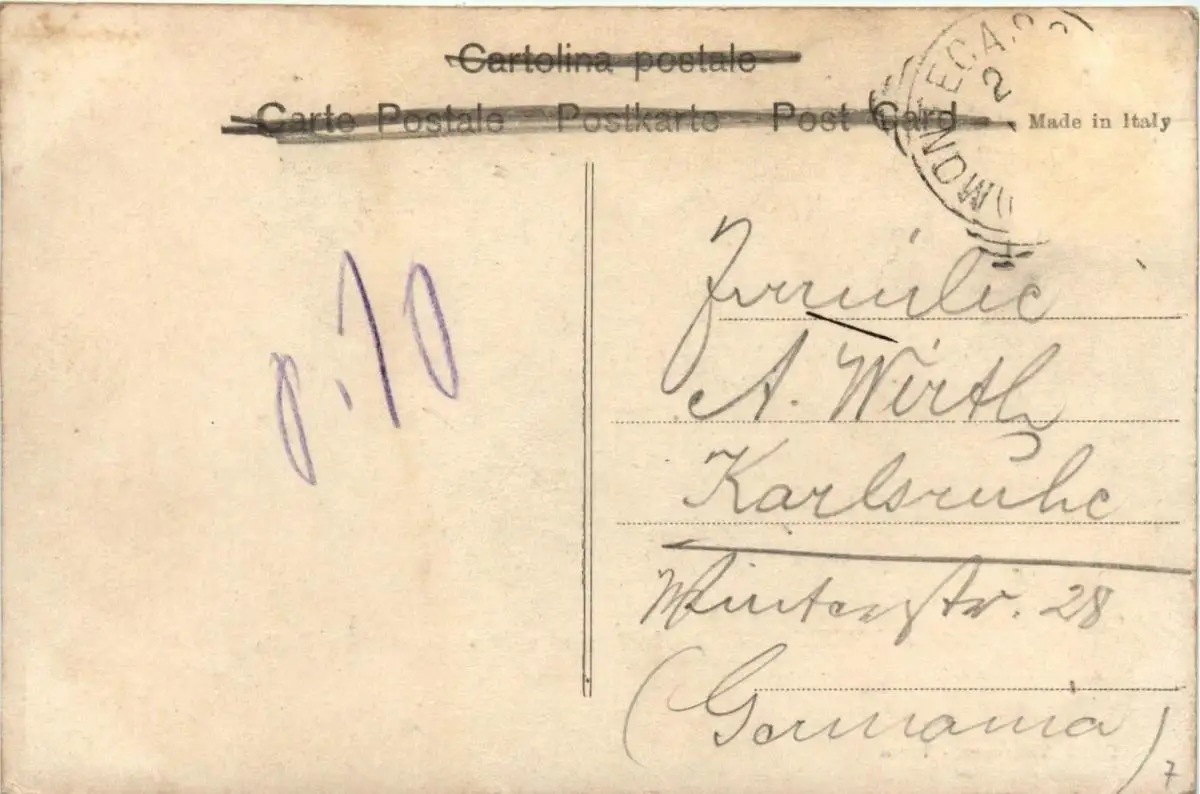 Cartolina postale
Carte Postale Postkarte Post Card
Made in Italy
2
p. 10
Familie
A. Wirth
Karlsruhe
Winterstr. 28
(Germania)
7